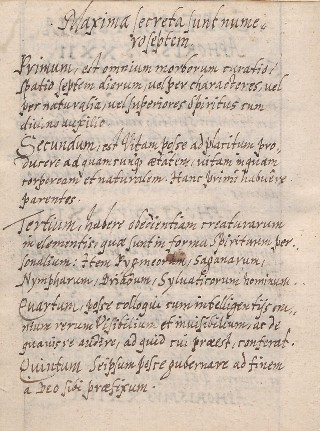 Maxima secreta sunt nume-
ro septem.
Primum, est omnium morborum curatio
spatio septem dierum, vel per characteres, vel
per naturalia, vel superiores Spiritus cum
divino auxilio.
Secundum, est Vitam posse ad placitum pro-
ducere ad quamcunq; ætatem, vitam inquam
corpoream et naturalem. Hanc primi habuere
parentes.
Tertium, habere obedientiam creaturarum
in elementis, quæ sunt in forma Spirituum per-
sonalium: Item Pygmeorum, Saganarum,
Nympharum, Dryadum, Sylvaticorum hominum.
Quartum, posse colloqui cum intelligentijs om-
nium rerum Visibilium et invisibilium, ac de
quavis re audire, ad quid cui præest, conferat.
Quintum Seipsum posse gubernare ad finem
a Deo sibi præfixum.